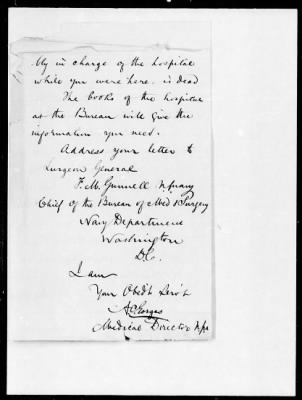 in charge of the hospital
while you were here. is dead
The books of the hospital
at the Bureau will give the
information you need.
Address your letter to
Surgeon General
F. M. Gunnell
Chief of the Bureau of Med & Surgery
Navy Department
Washington
D.C.
I am
Your Obedt Servt
A C Gorgas
Medical Director